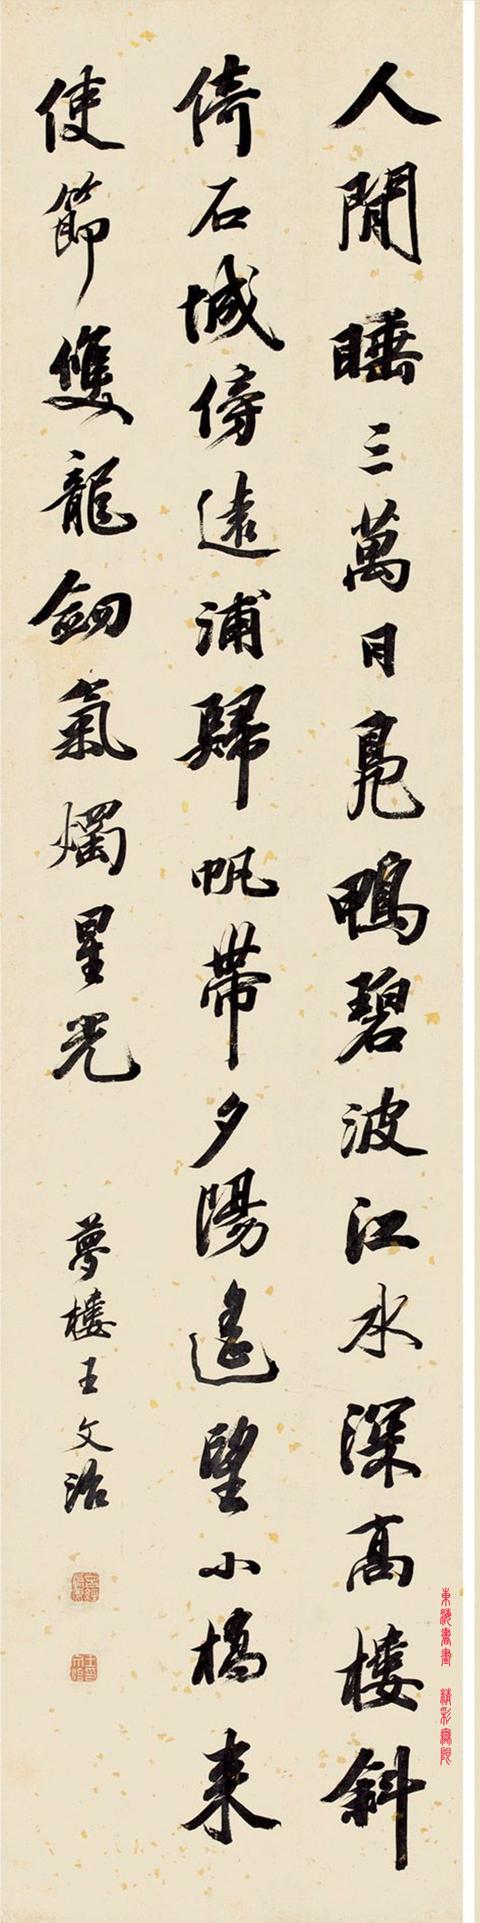 人閒睡三萬日鳧鴨碧波江水深高樓斜
倚石城傍遠浦歸帆帶夕陽遙望小橋来
使節雙龍劒氣燭星光
夢樓王文治
東海書畫 精彩無限